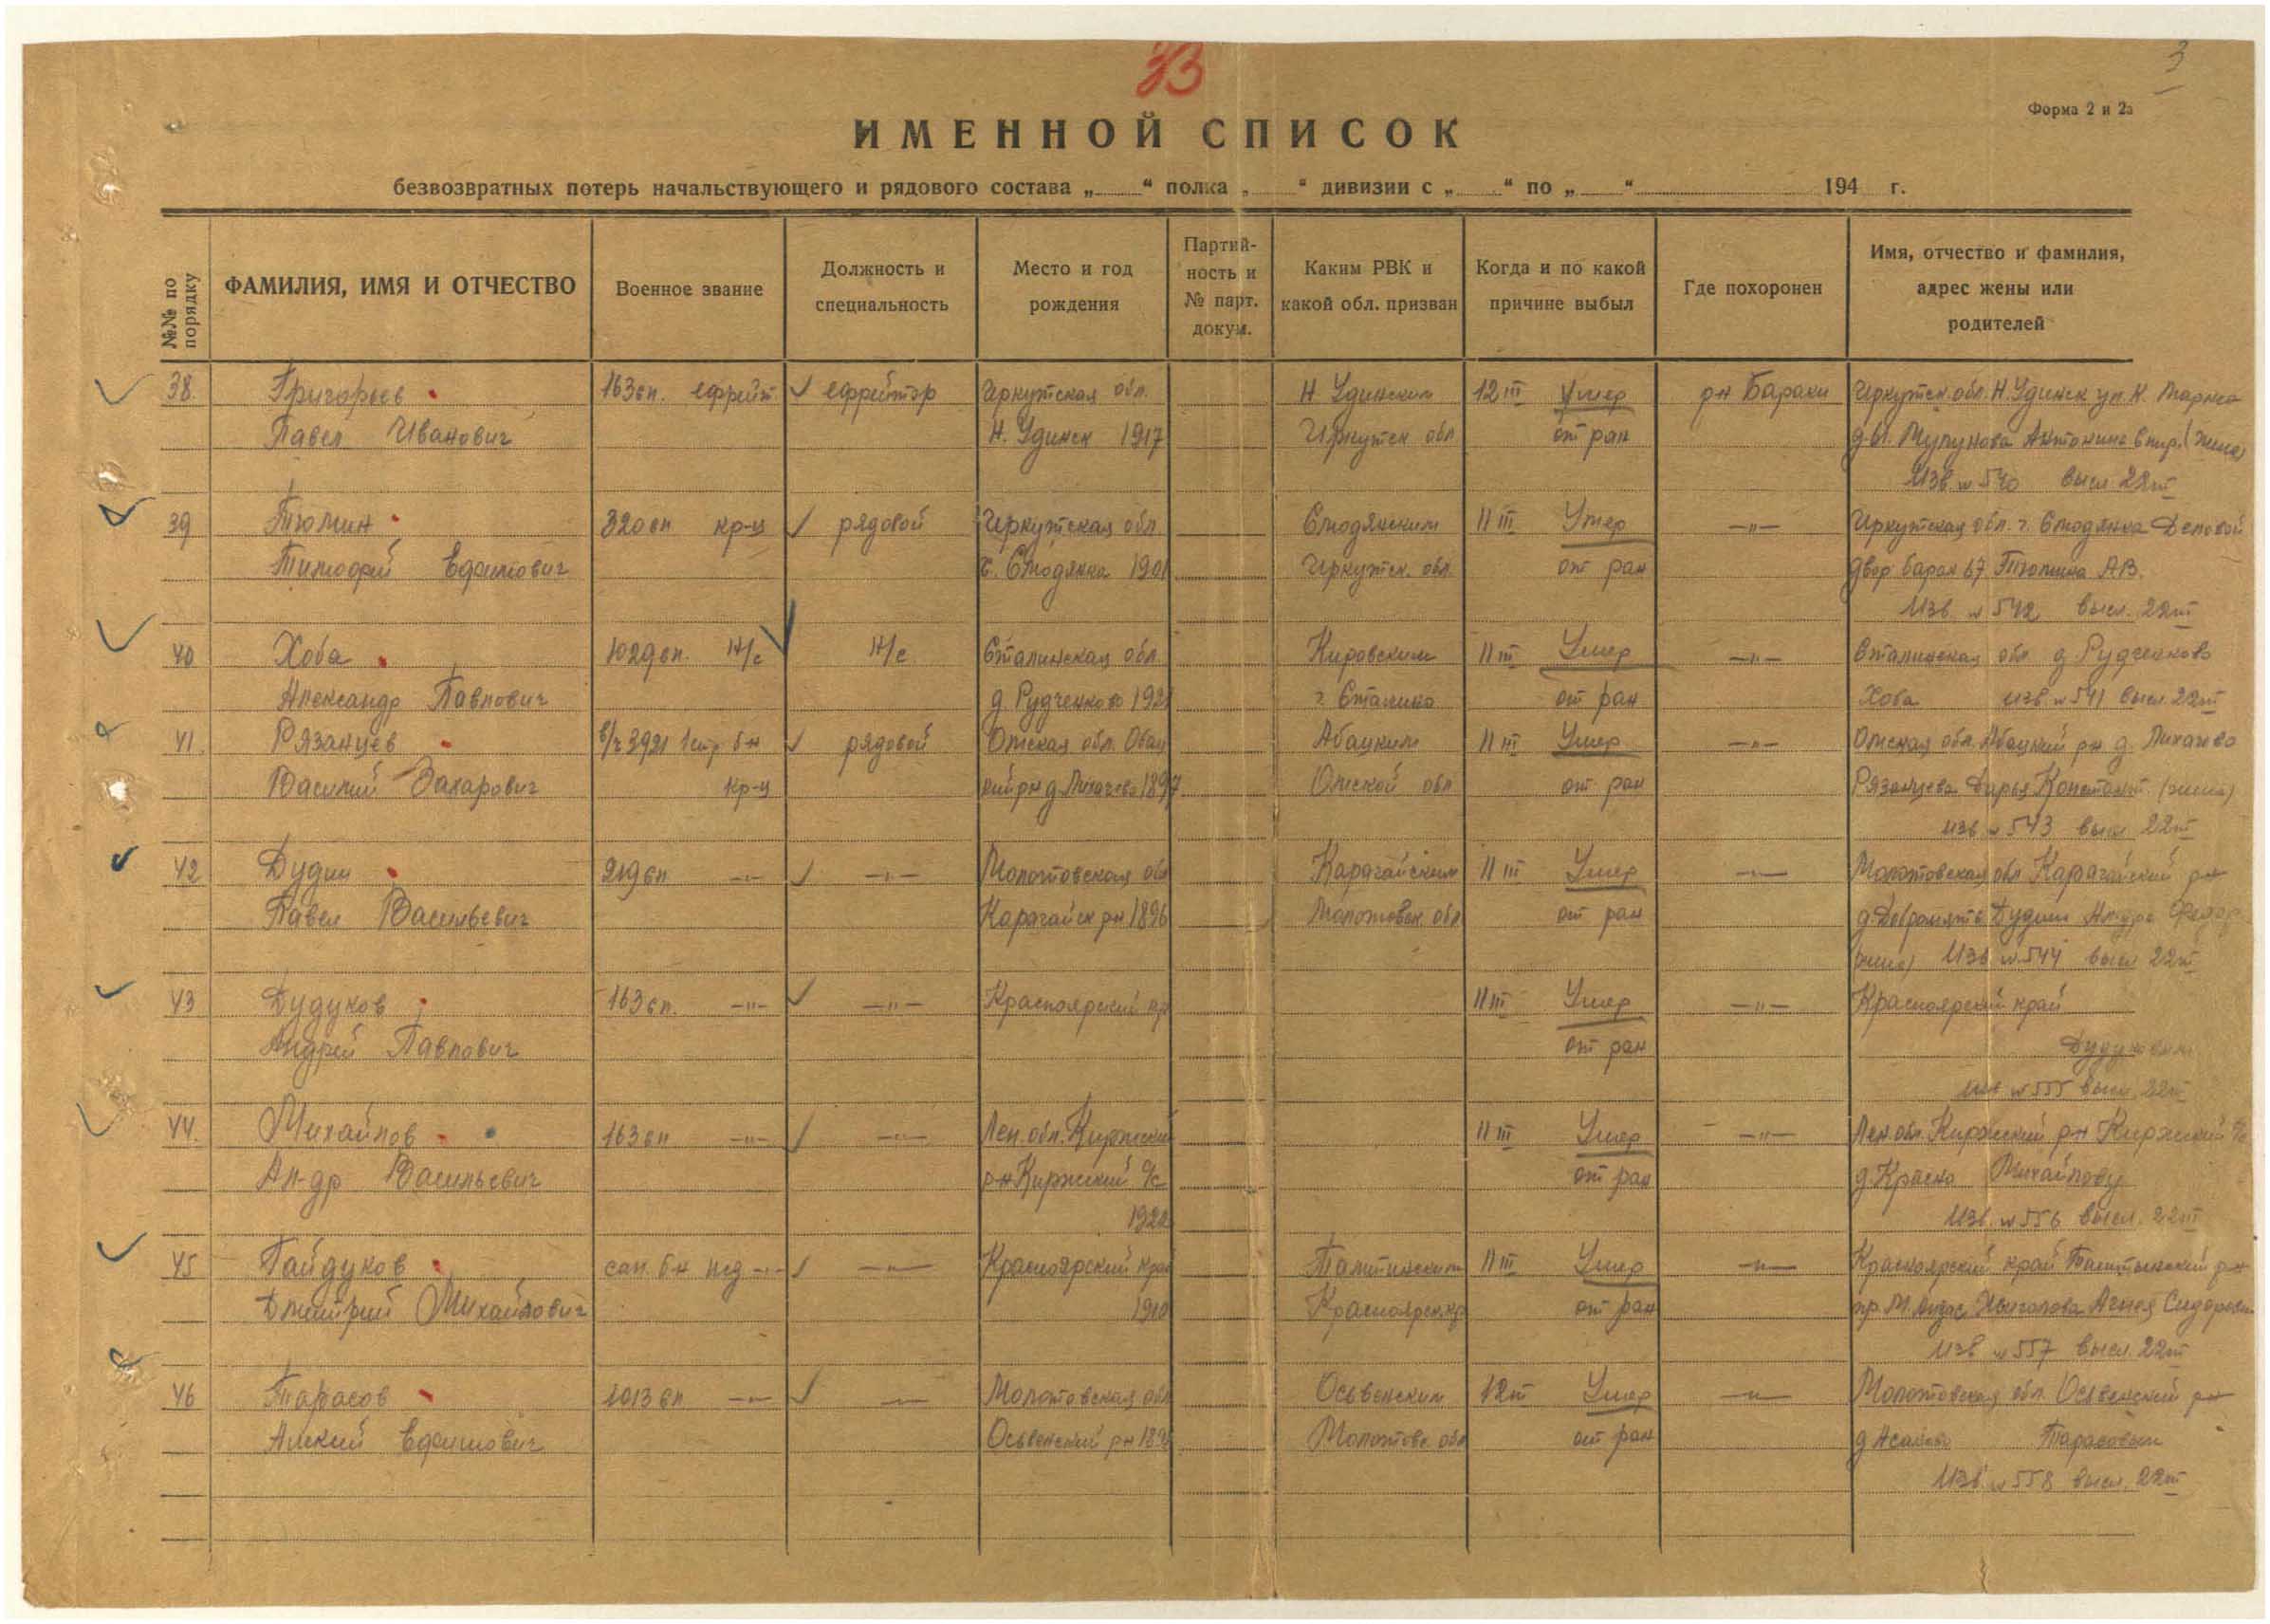 33
3
Форма 2 и 2а
ИМЕННОЙ СПИСОК
безвозвратных потерь начальствующего и рядового состава „ “ полка „ “ дивизии с „ “ по „ “ 194 г.
№№ по порядку
ФАМИЛИЯ, ИМЯ И ОТЧЕСТВО
Военное звание
Должность и
специальность
Место и год
рождения
Партий-
ность и
№ парт.
докум.
Каким РВК и
какой обл. призван
Когда и по какой
причине выбыл
Где похоронен
Имя, отчество и фамилия,
адрес жены или
родителей
38. Григорьев 163 сп. ефрейт ефрейтор Иркутская обл. Н. Удинским 12 III Умер рн Бараки Иркутск. обл. Н. Удинск ул. К. Маркса
Павел Иванович Н. Удинск 1917 Иркутск обл от ран Антонина (жена)
Изв № 540 высл 22 III
39 Тюмин 320 сп кр-ц рядовой Иркутская обл Слюдянским 11 III Умер —"— Иркутская обл. г. Слюдянка Деповой
Тимофей Ефимович г. Слюдянка 1901 Иркутск. обл. от ран двор барак 67 Тюмина А.В.
Изв № 542 высл. 22 III
40 Хоба 1029 сп. М/с М/с Сталинская обл Кировским 11 III Умер —"— Сталинская обл д Рудченково
Александр Павлович д Рудченково г. Сталино от ран Хоба изв. № 541 высл 22 III
41. Рязанцев в/ч 3921 1 стр б-н рядовой Омская обл. Абац Абацким 11 III Умер —"— Омская обл. Абацкий рн д. Лихачево
Василий Захарович кр-ц кий рн д Лихачево 1897 Омской обл от ран Рязанцева Дарья Константин. (жена)
изв № 543 высл 22 III
42 Дудин 219 сп —"— —"— Молотовская обл Карагайским 11 III Умер —"— Молотовская обл Карагайский рн
Павел Васильевич Карагайск рн 1896 Молотовск. обл от ран Федор
(жена) Изв № 544 высл 22 III
43 Дудуков 163 сп. —"— —"— Красноярский кр 11 III Умер —"— Красноярский край
Андрей Павлович от ран
изв № 555 высл. 22 III
44. Михайлов 163 сп —"— —"— Лен. обл. Киржский 11 III Умер —"— Лен обл. Киржский рн Киржский с/с
Ал-др Васильевич р-н Киржский с/с от ран Михайлову
1922 Изв. № 556 высл. 22 III
45 Гайдуков сап. б-н —"— —"— Красноярский край 11 III Умер —"— Красноярский край р-н
Дмитрий Михайлович 1910 Красноярск. кр от ран Сидоровн
Изв № 557 высл. 22 III
46 Тарасов 1013 сп —"— —"— Молотовская обл Осьвенским 12 III Умер —"— Молотовская обл. Осьвенский р-н
Ефимович Осьвенский рн Молотовс обл от ран Тарасовым
Изв № 558 высл. 22 III